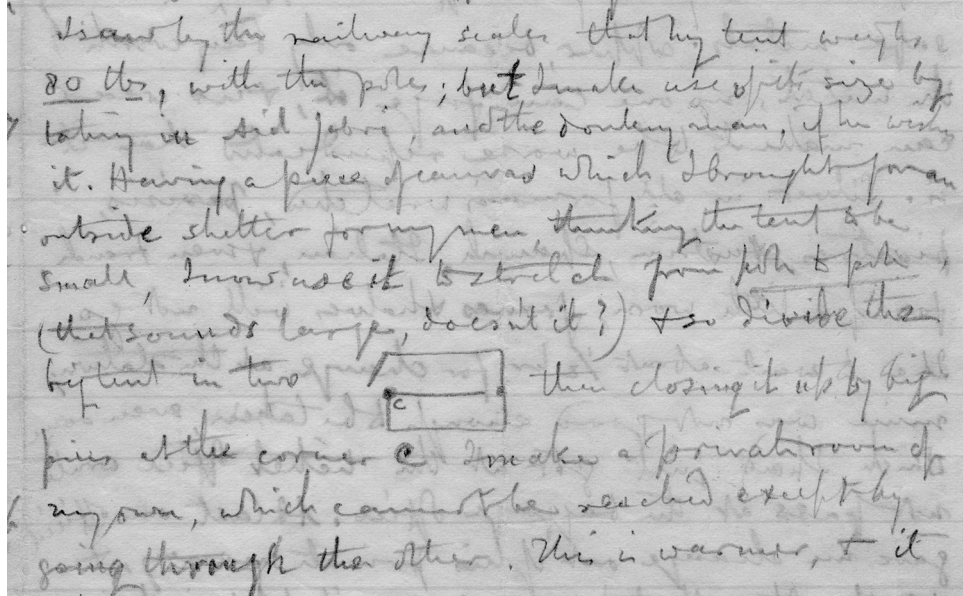 I saw by the railway scales that my tent weighs
80 lbs, with the poles; but I make use of its size by
taking in Aid Jabri, and the donkey man, if he wishes
it. Having a piece of canvas which I brought for an
outside shelter for my men thinking the tent to be
small, I now use it to stretch from pole to pole,
(that sounds large, doesn't it?) & so divide the
big tent in two then closing it up by big
pins at the corner C I make a private room of
my own, which cannot be reached except by
going through the other. This is warmer, & it
C